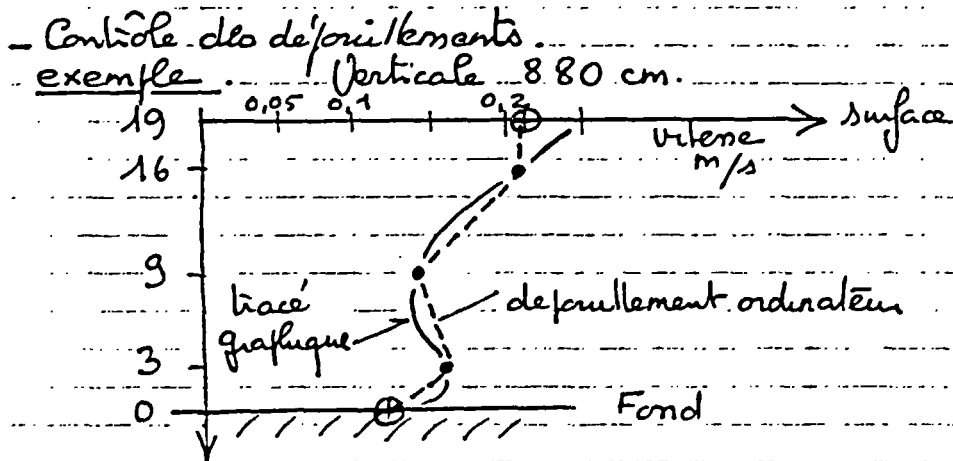 - Contrôle des dépouillements.
exemple. Verticale 880 cm.
0,05 0,1 0,2
19 surface
vitesse
m/s
16
9
tracé
graphique
depouillement ordinateur
3
0 Fond